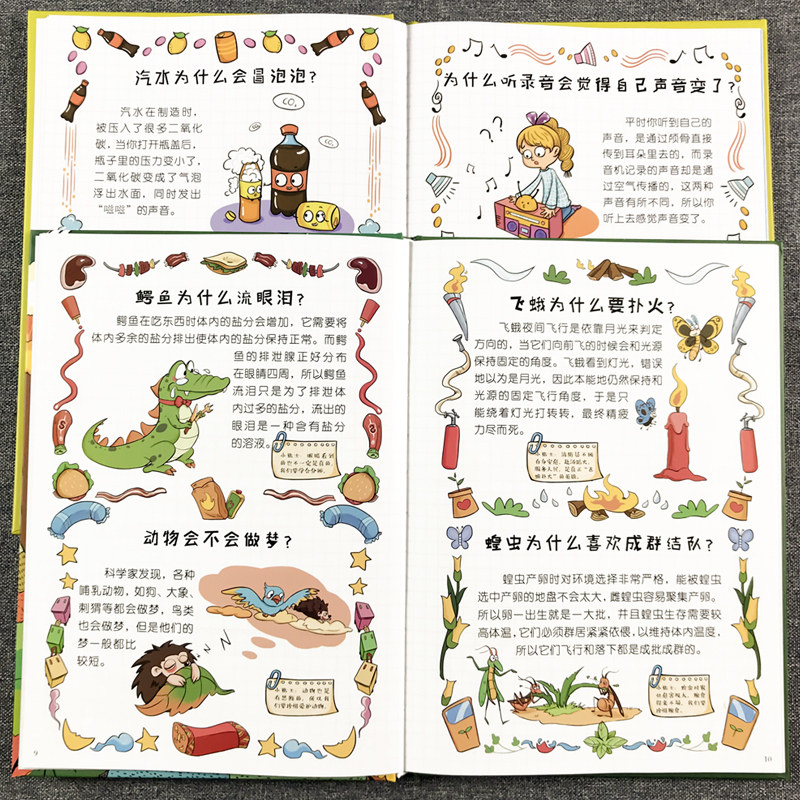 汽水为什么会冒泡泡?
汽水在制造时，
被压入了很多二氧化
碳，当你打开瓶盖后，
瓶子里的压力变小了，
二氧化碳变成了气泡
浮出水面，同时发出
“咝咝”的声音。
CO₂
CO₂
为什么听录音会觉得自己声音变了?
平时你听到自己的
声音，是通过颅骨直接
传到耳朵里去的，而录
音机记录的声音却是通
过空气传播的，这两种
声音有所不同，所以你
听上去感觉声音变了。
??
鳄鱼为什么流眼泪?
鳄鱼在吃东西时体内的盐分会增加，它需要将
体内多余的盐分排出使体内的盐分保持正常。而鳄
鱼的排泄腺正好分布
在眼睛四周，所以鳄鱼
流泪只是为了排泄体
内过多的盐分，流出的
眼泪是一种含有盐分
的溶液。
动物会不会做梦?
科学家发现，各种
哺乳动物，如狗、大象、
刺猬等都会做梦，鸟类
也会做梦，但是他们的
梦一般都比
较短。
ZZZ
小贴士：动物也是
9
飞蛾为什么要扑火?
飞蛾夜间飞行是依靠月光来判定
方向的，当它们向前飞的时候会和光源
保持固定的角度。飞蛾看到灯光，错误
地以为是月光，因此本能地仍然保持和
光源的固定飞行角度，于是只
能绕着灯光打转转，最终精疲
力尽而死。
蝗虫为什么喜欢成群结队?
蝗虫产卵时对环境选择非常严格，能被蝗虫
选中产卵的地盘不会太大，雌蝗虫容易聚集产卵。
所以卵一出生就是一大批，并且蝗虫生存需要较
高体温，它们必须群居紧紧依偎，以维持体内温度，
所以它们飞行和落下都是成批成群的。
10